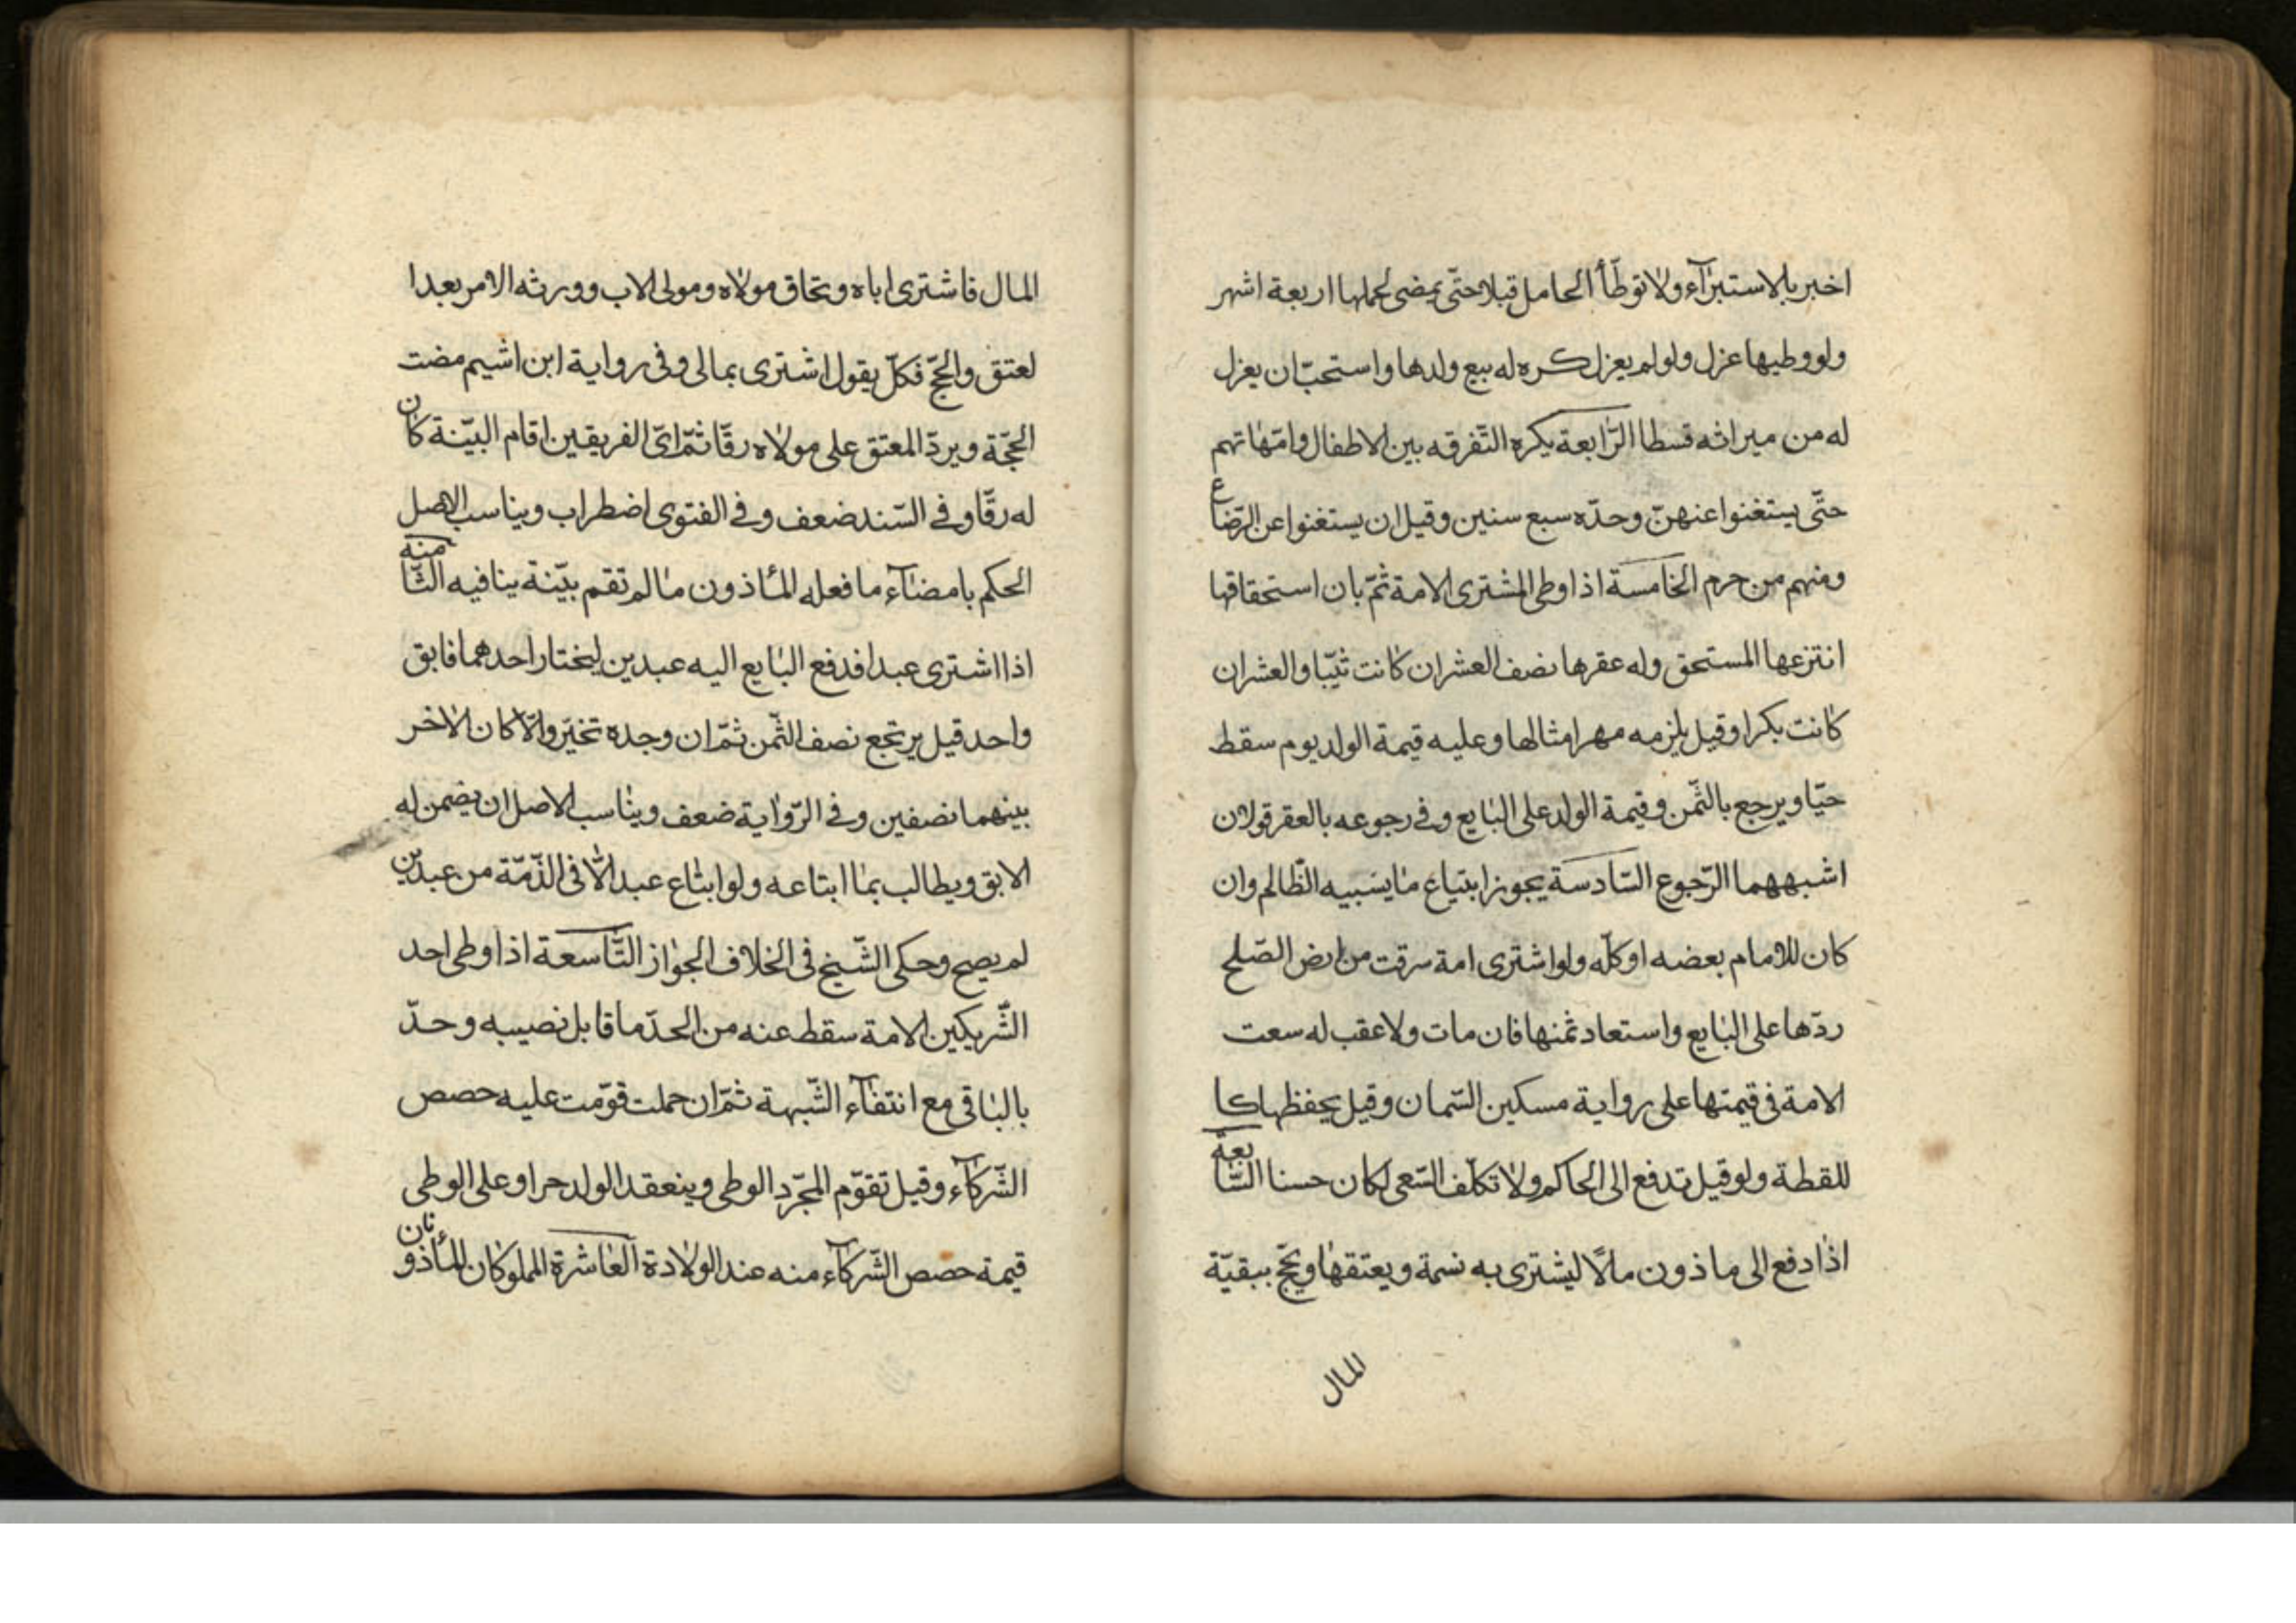 اخبر بالاستبرآء ولا توطأ الحامل قبلا حتّى يمضى لحملها اربعة اشهر
ولو وطيها عزل ولو لم يعزل كره له بيع ولدها واستحبّ ان يعزل
له من ميراثه قسطا الرّابعة يكره التّفرقه بين الاطفال وامّهاتهم
حتّى يستغنوا عنهنّ وحدّه سبع سنين وقيل ان يستغنوا عن الرّضاع
ومنهم من حرم الخامسة اذا وطى المشترى الامة ثمّ بان استحقاقها
انتزعها المستحق وله عقرها نصف العشر ان كانت ثيّبا والعشر ان
كانت بكرا وقيل يلزمه مهر امثالها وعليه قيمة الولد يوم سقط
حيّا ويرجع بالثّمن وقيمة الولد على البايع وفى رجوعه بالعقر قولان
اشبههما الرّجوع السّادسة يجوز ابتياع ما يسبيه الظّالم وان
كان للامام بعضه او كلّه ولو اشترى امة سرقت من ارض الصّلح
ردّها على البايع واستعاد ثمنها فان مات ولا عقب له سعت
الامة فى قيمتها على رواية مسكين السّمان وقيل يحفظها كا
للقطة ولو قيل تدفع الى الحاكم ولا تكلّف السّعى لكان حسنا السّابعة
اذا دفع الى ماذون مالًا ليشترى به نسمة ويعتقها ويحجّ ببقيّة
المال
المال فاشترى اباه وتحاق مولاه ومولى الاب وورثه الامر بعد ا
لعتق والحجّ فكلّ يقول اشترى بمالى وفى رواية ابن اشيم مضت
الحجّة ويردّ المعتق على مولاه رقّا ثمّ اىّ الفريقين اقام البيّنة كان
له رقّا وفى السّند ضعف وفى الفتوى اضطراب ويناسب الاصل
الحكم بامضاء ما فعله المأذون ما لم تقم بيّنة ينافيه الثّامنه
اذا اشترى عبدا فدفع البايع اليه عبدين ليختار احدهما فابق
واحد قيل يرتجع نصف الثّمن ثمّ ان وجده تخيّر والّا كان الاخر
بينهما نصفين وفى الرّواية ضعف ويناسب الاصل ان يضمن له
الابق ويطالب بما ابتاعه ولو ابتاع عبدا فى الذّمّة من عبدين
لم يصح وحكى الشّيخ فى الخلاف الجواز التّاسعة اذا وطى احد
الشّريكين الامة سقط عنه من الحدّ ما قابل نصيبه وحدّ
بالباقى مع انتفآء الشّبهة ثمّ ان حملت قوّمت عليه حصص
الشّركآء وقيل تقوّم لمجرّد الوطى وينعقد الولد حرا وعلى الوطى
قيمة حصص الشّركآء منه عند الولادة العاشرة المملوكان المأذونان